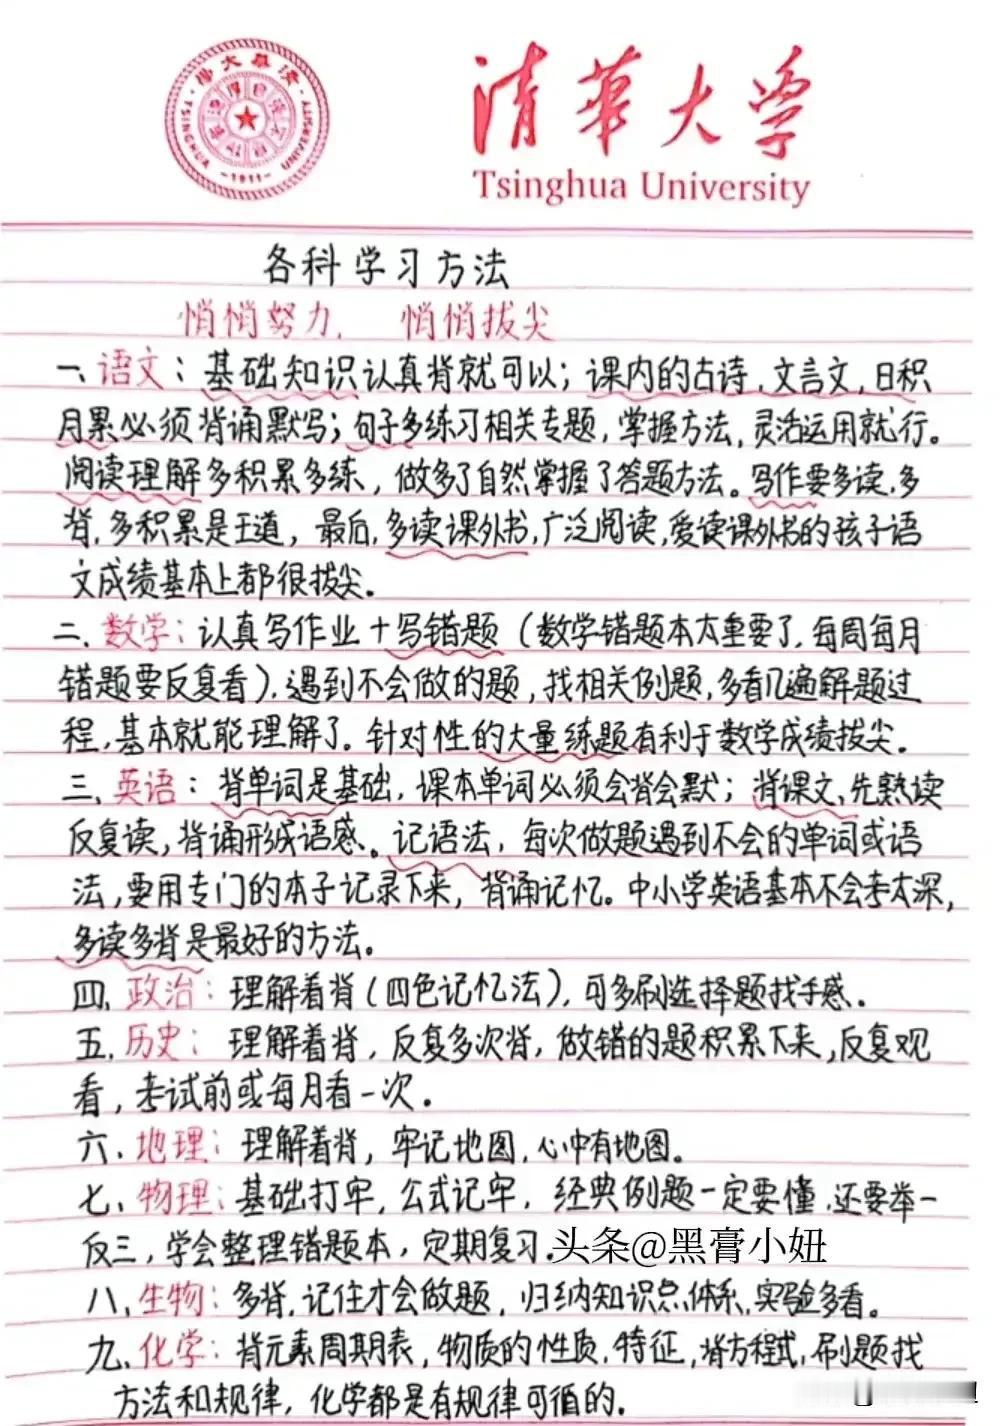 清华大学
TSINGHUA UNIVERSITY
-1911-
清華大学
Tsinghua University
各科学习方法
悄悄努力, 悄悄拔尖
一、语文:基础知识认真背就可以;课内的古诗,文言文,日积
月累必须背诵默写;句子多练习相关专题,掌握方法,灵活运用就行。
阅读理解多积累多练,做多了自然掌握了答题方法。写作要多读,多
背,多积累是王道,最后,多读课外书,广泛阅读,爱读课外书的孩子语
文成绩基本上都很拔尖。
二、数学:认真写作业+写错题(数学错题本太重要了,每周每月
错题要反复看),遇到不会做的题,找相关例题,多看几遍解题过
程,基本就能理解了。针对性的大量练题有利于数学成绩拔尖。
三、英语:背单词是基础,课本单词必须会背会默;背课文,先熟读
反复读,背诵形成语感。记语法,每次做题遇到不会的单词或语
法,要用专门的本子记录下来,背诵记忆。中小学英语基本不会考太深,
多读多背是最好的方法。
四、政治:理解着背(四色记忆法),可多刷选择题找手感.
五、历史:理解着背,反复多次背,做错的题积累下来,反复观
看,考试前或每月看一次.
六、地理:理解着背,牢记地图,心中有地图。
七、物理:基础打牢,公式记牢,经典例题一定要懂,还要举一
反三,学会整理错题本,定期复习.
头条@黑膏小妞
八、生物:多背,记住才会做题,归纳知识点体系,实验多看。
九、化学:背元素周期表,物质的性质,特征,背方程式,刷题找
方法和规律,化学都是有规律可循的.